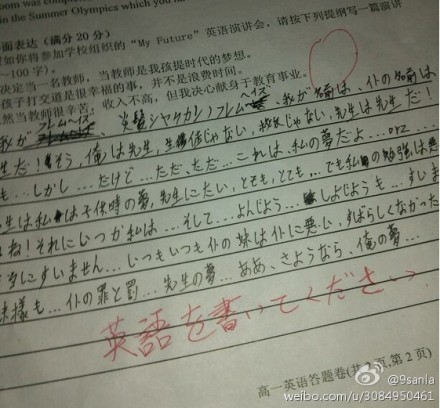 oom was comp
n the Summer Olympics which you h
面表达（满分20分）
如你将参加学校组织的"My Future"英语演讲会，请按下列提纲写一篇演讲
～100字）。
决定当一名教师，当教师是我孩提时代的梦想。
孩子打交道是很幸福的事，并不是浪费时间。
然当教师很辛苦，收入不高，但我决心献身于教育事业。
我が 炎髪 シャケカン フレムヘイズ、我が名前は、仆の名前は
生だ！そう，俺は先生，生信じゃない，校长じゃない，先生は先生だ！
も…しかし…だけど…ただ、ただ…これは、私の夢だよ…
先生は私は子供時の夢，先生にたい，とても，とても…でも私の勉強は悪
よね！それにいつか私は…そして…よんじよう…しよじようも…すいま
すいません…いつもいつも仆の妹は仆に悪い，すばらしくなかった
妹様も…仆の罪と罰…先生の夢…ああ、さようなら，俺の夢…
英語を書いてください
高一英语答题卷(共2页,第2页)
@9sanla
weibo.com/u/3084950461